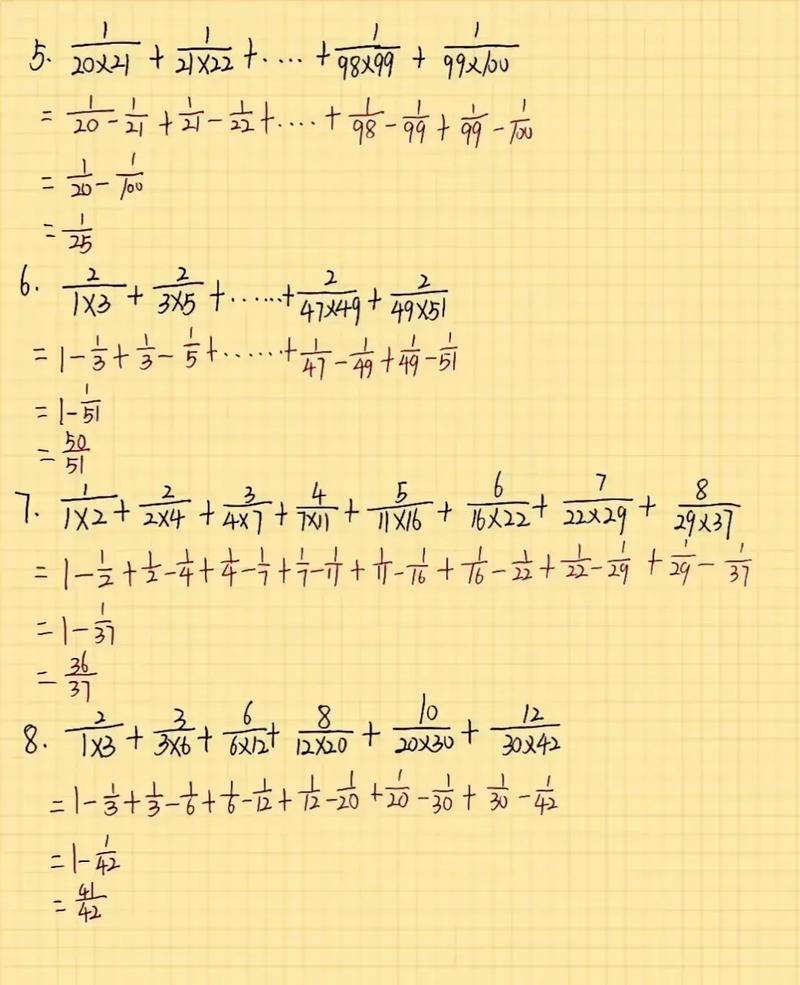 5. 1/(20×21) + 1/(21×22) + .... + 1/(98×99) + 1/(99×100)
= 1/20 - 1/21 + 1/21 - 1/22 + .... + 1/98 - 1/99 + 1/99 - 1/100
= 1/20 - 1/100
= 1/25
6. 2/(1×3) + 2/(3×5) + ...... + 2/(47×49) + 2/(49×51)
= 1 - 1/3 + 1/3 - 1/5 + ...... + 1/47 - 1/49 + 1/49 - 1/51
= 1 - 1/51
= 50/51
7. 1/(1×2) + 2/(2×4) + 3/(4×7) + 4/(7×11) + 5/(11×16) + 6/(16×22) + 7/(22×29) + 8/(29×37)
= 1 - 1/2 + 1/2 - 1/4 + 1/4 - 1/7 + 1/7 - 1/11 + 1/11 - 1/16 + 1/16 - 1/22 + 1/22 - 1/29 + 1/29 - 1/37
= 1 - 1/37
= 36/37
8. 2/(1×3) + 3/(3×6) + 6/(6×12) + 8/(12×20) + 10/(20×30) + 12/(30×42)
= 1 - 1/3 + 1/3 - 1/6 + 1/6 - 1/12 + 1/12 - 1/20 + 1/20 - 1/30 + 1/30 - 1/42
= 1 - 1/42
= 41/42